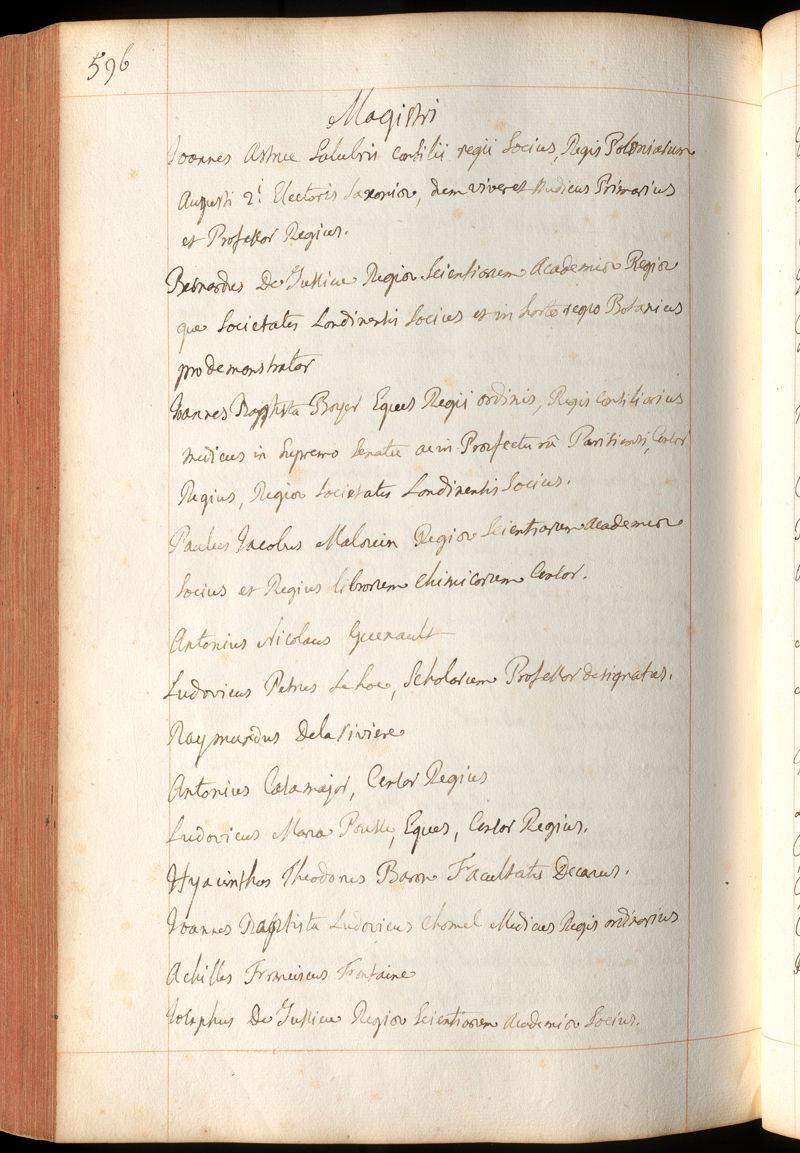 596
Magistri
Joannes Astruc Salubris consilii regii Socius, Regis Poloniarum
Augusti 2i. Electoris Saxoniæ, dum viveret Medicus Primarius
et Professor Regius.
Bernardus De Jussieu Regiæ Scientiarum Academiæ Regiæ
que Societatis Londinensis Socius et in horto regio Botanicus
prodemonstrator
Joannes Baptista Boyer Eques Regii ordinis, Regis consiliarius
medicus in supremo Senatu ac in Præfectura Parisiensi, Censor
Regius, Regiæ Societatis Londinensis Socius.
Paulus Jacobus Malouin Regiæ Scientiarum Academiæ
Socius et Regius librorum chimicorum Censor.
Antonius Nicolaus Guenault
Ludovicus Petrus Le hoc, Scholarum Professor designatus.
Raymundus Delariviere
Antonius Casamajor, Censor Regius
Ludovicus Maria Pousse, Eques, Censor Regius.
Hyacinthus Theodorus Baron Facultatis Decanus.
Joannes Baptista Ludovicus Chomel Medicus Regis ordinarius
Achilles Franciscus Fontaine
Josephus De Jussieu Regiæ Scientiarum Academiæ Socius.